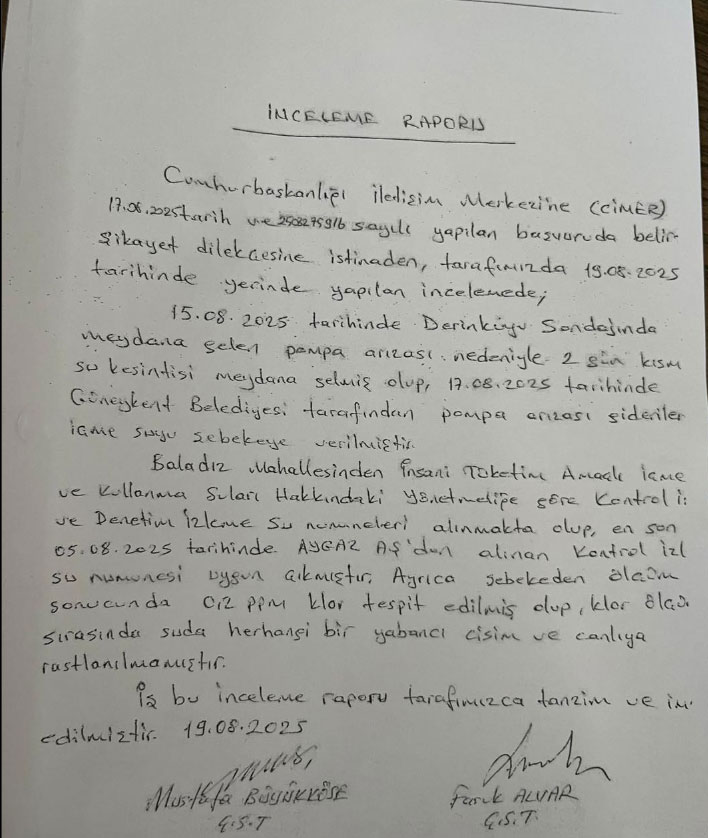 İNCELEME RAPORU
Cumhurbaşkanlığı İletişim Merkezi'ne (CİMER)
17.08.2025 tarih ve sayılı yapılan başvuruda belir-
şikayet dilekçesine istinaden, tarafımızda 19.08.2025
tarihinde yerinde yapılan incelemede;
15.08.2025 tarihinde Derinkuyu Sondajında
meydana gelen pompa arızası nedeniyle 2 gün kısm
su kesintisi meydana gelmiş olup, 17.08.2025 tarihinde
Güneykent Belediyesi tarafından pompa arızası gideriler
içme suyu şebekeye verilmiştir.
Baladız Mahallesinden İnsani Tüketim Amaçlı İçme
ve Kullanma Suları Hakkındaki Yönetmeliğe göre Kontrol i
ve Denetim İzleme Su numuneleri alınmakta olup, en son
05.08.2025 tarihinde AYGAZ AŞ'den alınan Kontrol izl
su numunesi uygun çıkmıştır. Ayrıca şebekeden ölçüm
sonucunda 0,2 ppm klor tespit edilmiş olup, klor ölçü
sırasında suda herhangi bir yabancı cisim ve canlıya
rastlanılmamıştır.
İş bu inceleme raporu tarafımızca tanzim ve im
edilmiştir. 19.08.2025
Mustafa BÜYÜKKÖSE Faruk ALVAR
Ç.S.T Ç.S.T.